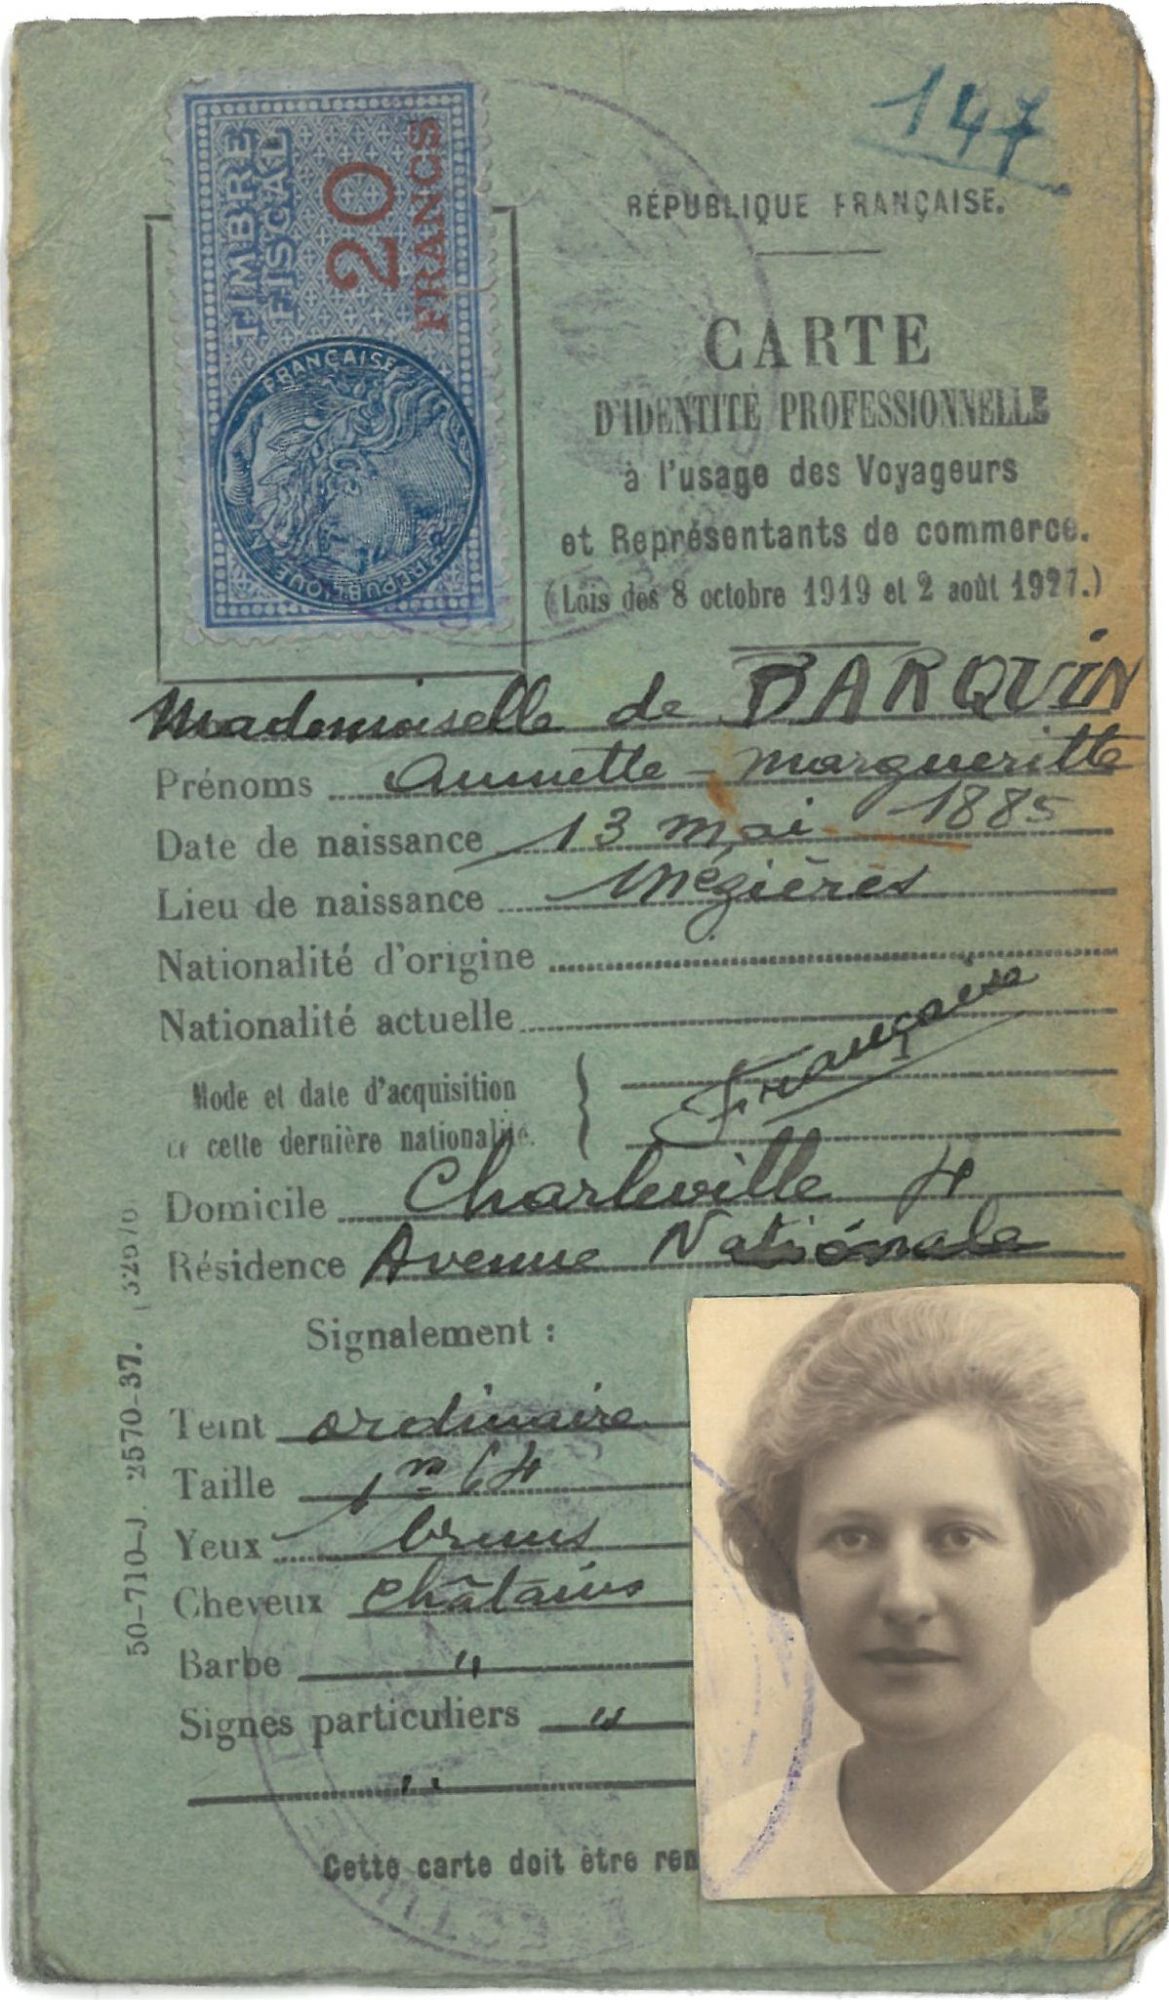 147
TIMBRE
FISCAL
20
FRANCS
RÉPUBLIQUE FRANÇAISE
RÉPUBLIQUE FRANÇAISE.
CARTE
D'IDENTITÉ PROFESSIONNELLE
à l'usage des Voyageurs
et Représentants de commerce.
(Lois des 8 octobre 1919 et 2 août 1927.)
Mademoiselle de BARQUIN
Prénoms Annette - Margueritte
Date de naissance 13 mai 1885
Lieu de naissance Mézières
Nationalité d'origine
Nationalité actuelle Française
Mode et date d'acquisition
de cette dernière nationalité.
Domicile Charleville 4
Résidence Avenue Nationale
Signalement :
Teint ordinaire
Taille 1m 64
Yeux bruns
Cheveux châtains
Barbe "
Signes particuliers "
"
Cette carte doit être ren
50-710-J. 2570-37.